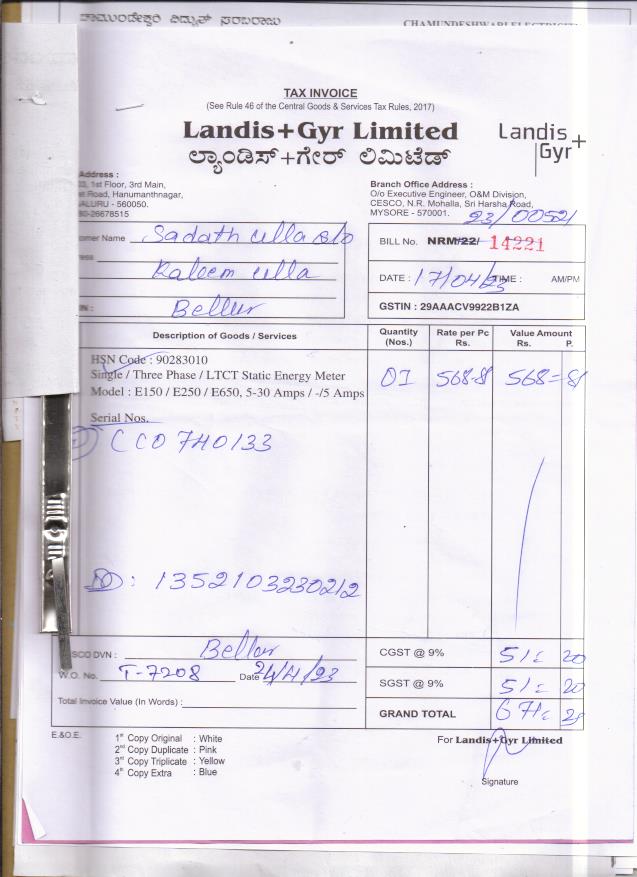 ಚಾಮುಂಡೇಶ್ವರಿ ವಿದ್ಯುತ್ ಸರಬರಾಜು
CHAMUNDESHWARI ELECTRICITY
TAX INVOICE
(See Rule 46 of the Central Goods & Services Tax Rules, 2017)
Landis+Gyr Limited
ಲ್ಯಾಂಡಿಸ್+ಗೇರ್ ಲಿಮಿಟೆಡ್
Landis+
Gyr
Address :
1st Floor, 3rd Main,
Road, Hanumanthnagar,
ALURU - 560050.
80-26678515
Branch Office Address :
O/o Executive Engineer, O&M Division,
CESCO, N.R. Mohalla, Sri Harsha Road,
MYSORE - 570001.
23/00521
omer Name Sadath ulla S/o
ress Kaleem ulla
IN : Bellur
BILL No. NRM/22/ 14221
DATE : 17/04/23 TIME : AM/PM
GSTIN : 29AAACV9922B1ZA
Description of Goods / Services
Quantity (Nos.)
Rate per Pc Rs.
Value Amount Rs. P.
HSN Code : 90283010
Single / Three Phase / LTCT Static Energy Meter
Model : E150 / E250 / E650, 5-30 Amps / -/5 Amps
01 568-81 568=81
Serial Nos.
CC0740133
DD : 1352103230212
SCO DVN : Bellur
W.O. No. T-7208 Date 24/4/23
Total Invoice Value (In Words) :
CGST @ 9% 51= 20
SGST @ 9% 51= 20
GRAND TOTAL 671=
E.&O.E.
1st Copy Original : White
2nd Copy Duplicate : Pink
3rd Copy Triplicate : Yellow
4th Copy Extra : Blue
For Landis+Gyr Limited
Signature